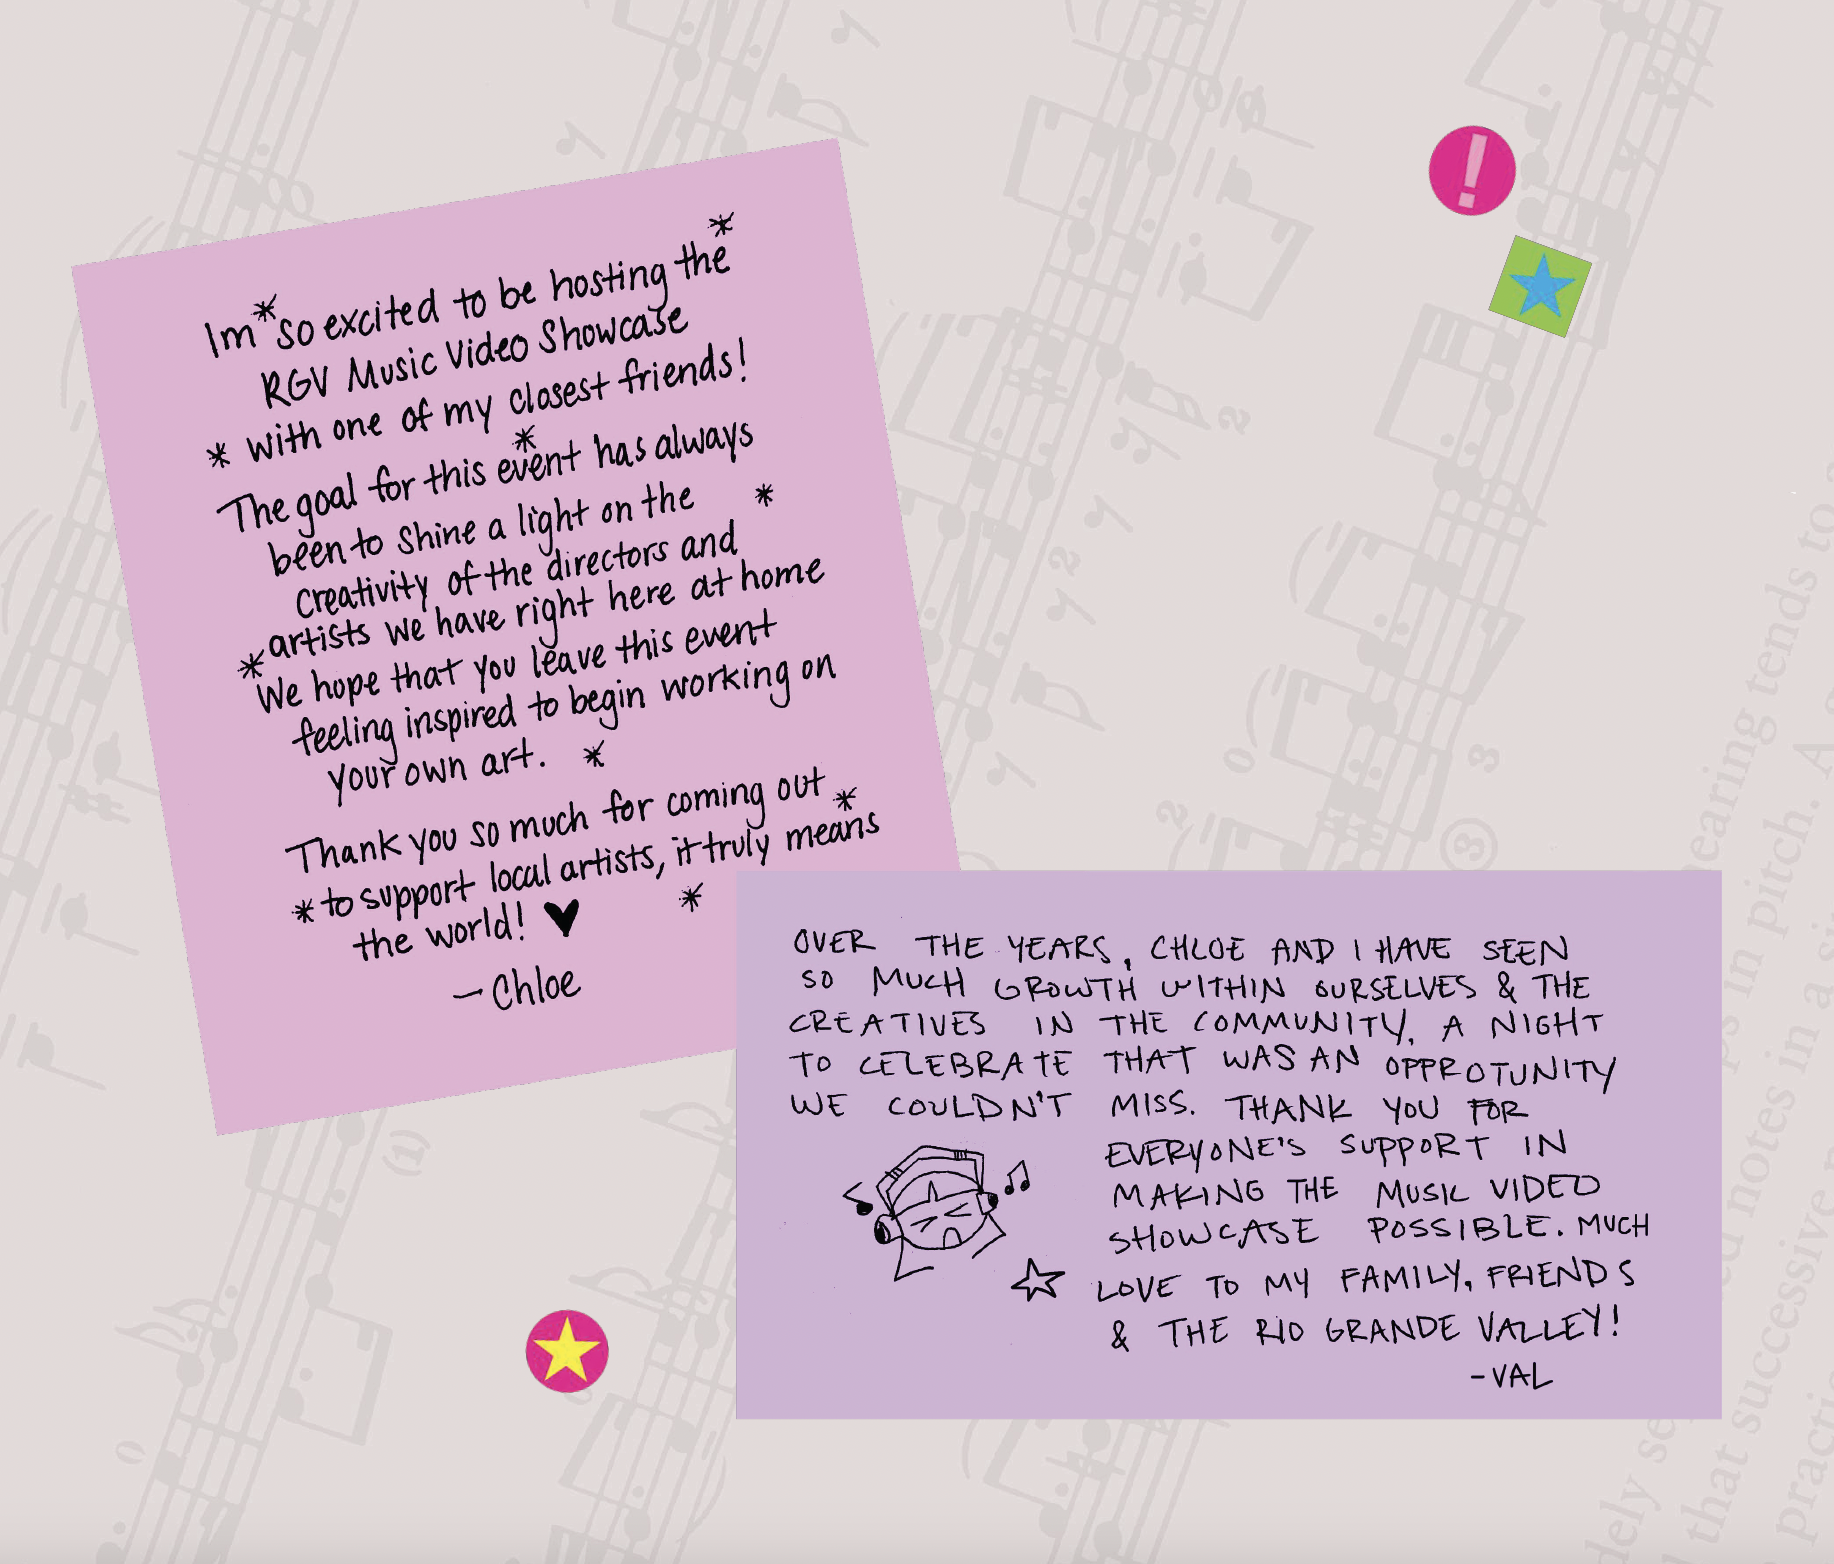 Im so excited to be hosting the
RGV Music Video Showcase
with one of my closest friends!
The goal for this event has always
been to shine a light on the
creativity of the directors and
artists we have right here at home
We hope that you leave this event
feeling inspired to begin working on
your own art.
Thank you so much for coming out
to support local artists, it truly means
the world! ♥
— Chloe
OVER THE YEARS, CHLOE AND I HAVE SEEN
SO MUCH GROWTH WITHIN OURSELVES & THE
CREATIVES IN THE COMMUNITY. A NIGHT
TO CELEBRATE THAT WAS AN OPPROTUNITY
WE COULDN'T MISS. THANK YOU FOR
EVERYONE'S SUPPORT IN
MAKING THE MUSIC VIDEO
SHOWCASE POSSIBLE. MUCH
LOVE TO MY FAMILY, FRIENDS
& THE RIO GRANDE VALLEY!
- VAL
!
earing tends to
s in pitch. A
notes in a si
that successive
practic
dely se
(1)
0
2
2
2
0
3
(3)